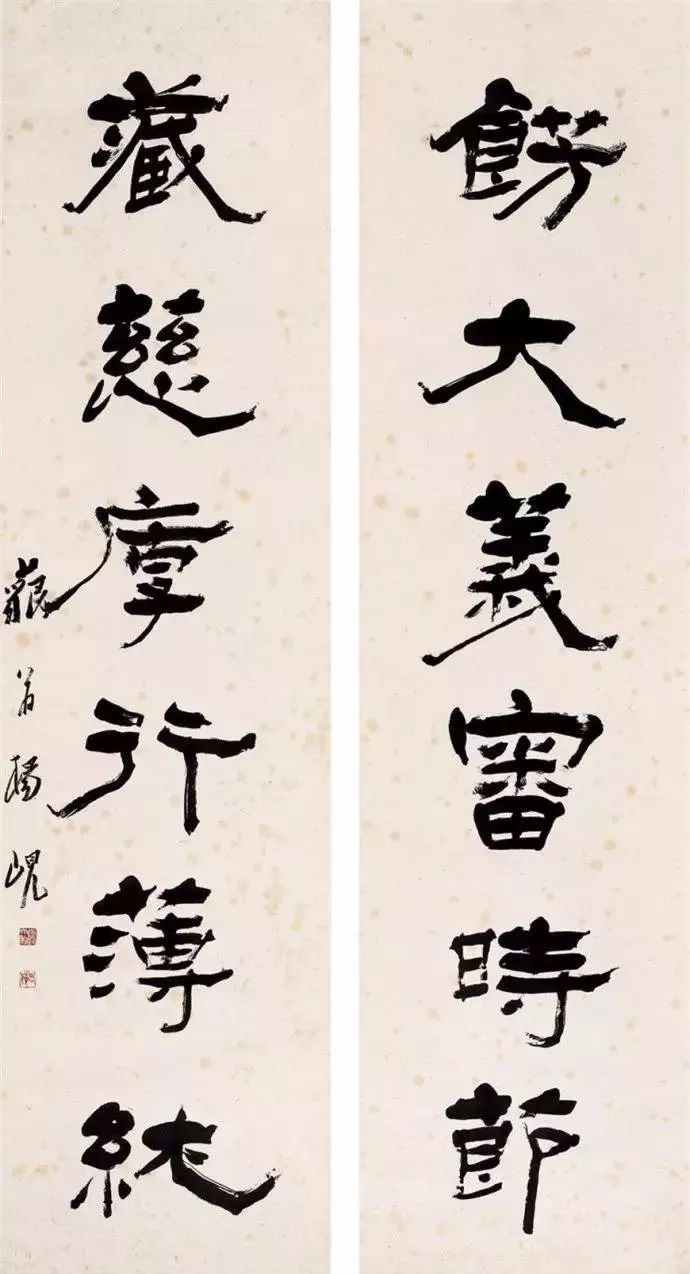 飭大義審時節
藏慈厚行薄
藐翁楊峴